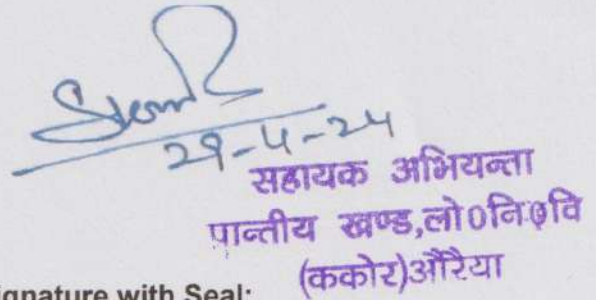 29-4-24
सहायक अभियन्ता
प्रान्तीय खण्ड,लो०नि०वि
(ककोर)औरैया
ignature with Seal: